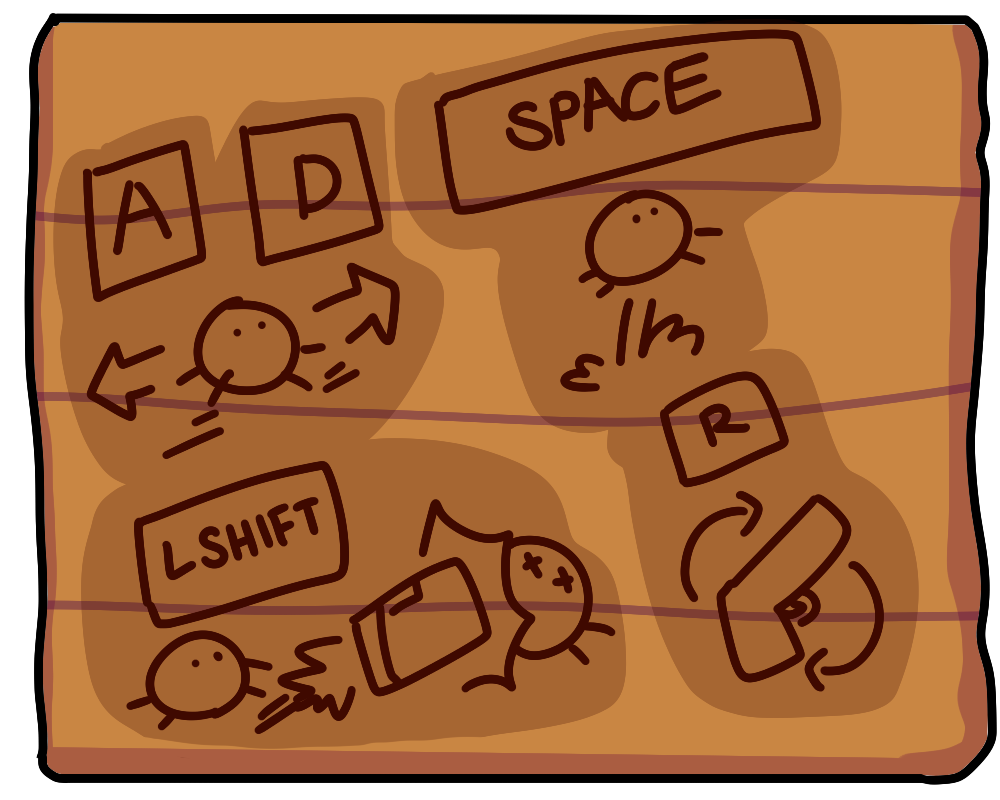 A D
SPACE
R
LSHIFT